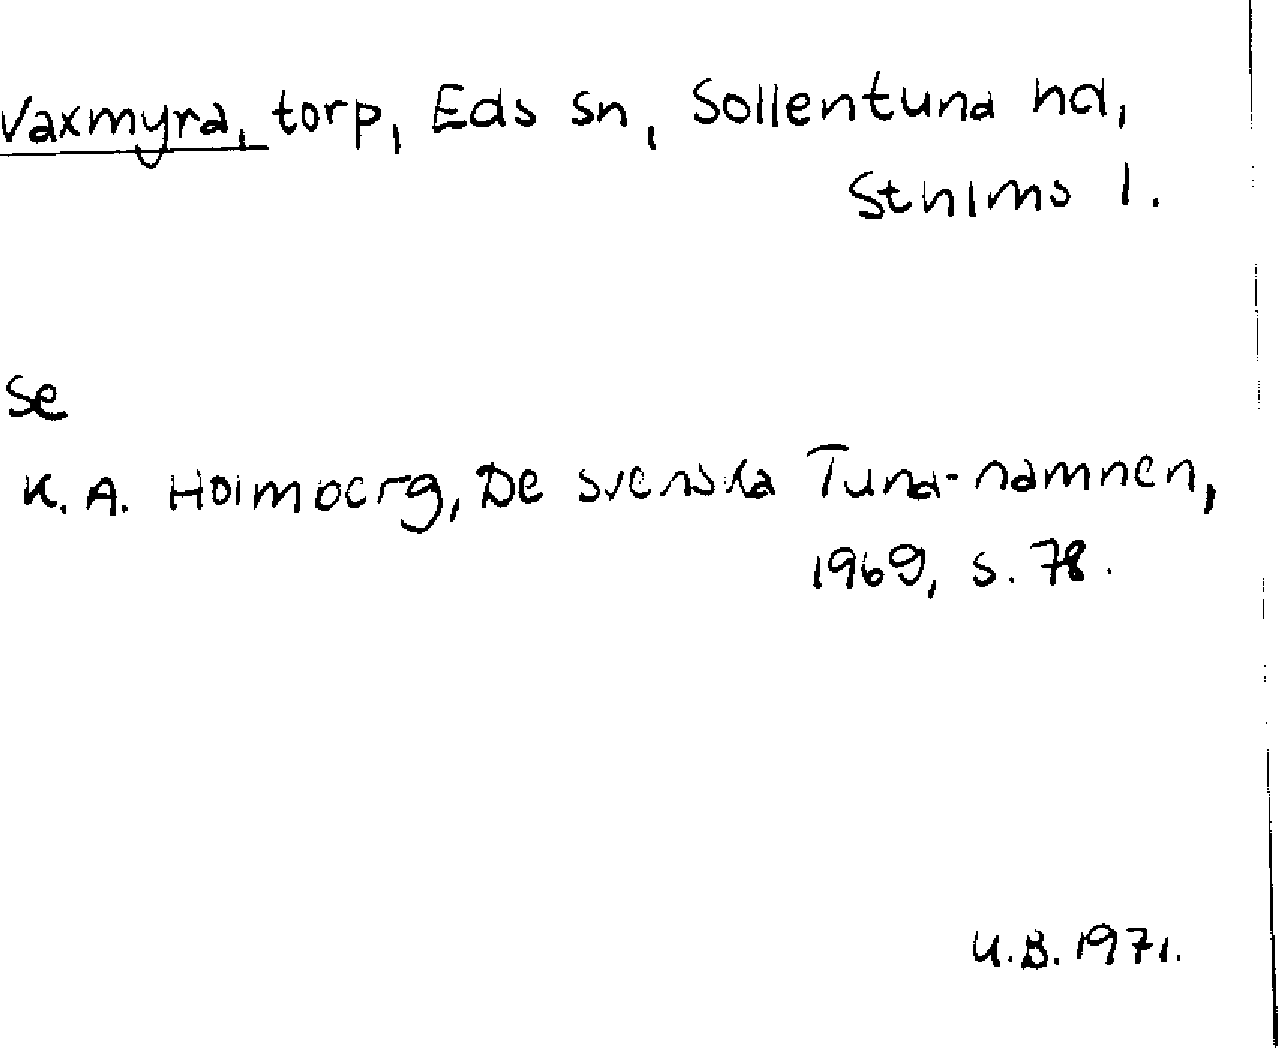 Vaxmyra, torp, Eds sn, Sollentuna hd,
Sthlms l.
se
K. A. Holmberg, De svenska Tuna-namnen,
1969, s. 78.
U.B. 1971.